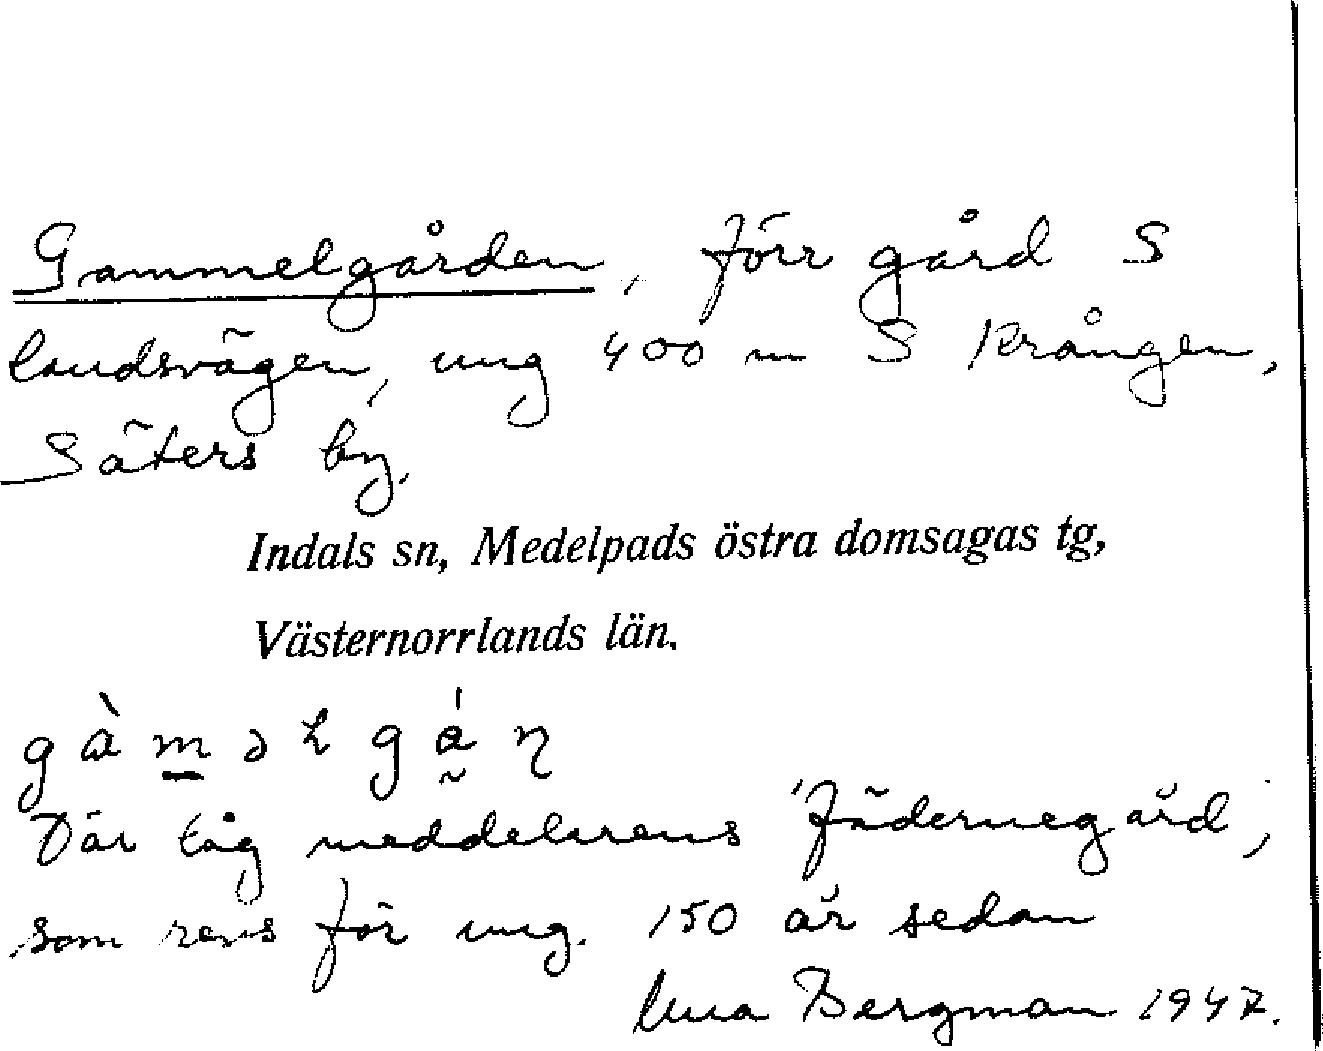 Gammelgården, förr gård S
landsvägen, ung 400 m S Krången,
Säters by.
Indals sn, Medelpads östra domsagas tg,
Västernorrlands län.
gàməlgán
Där låg meddelarens fädernegård,
som revs för ung. 150 år sedan
Bergman 1947.